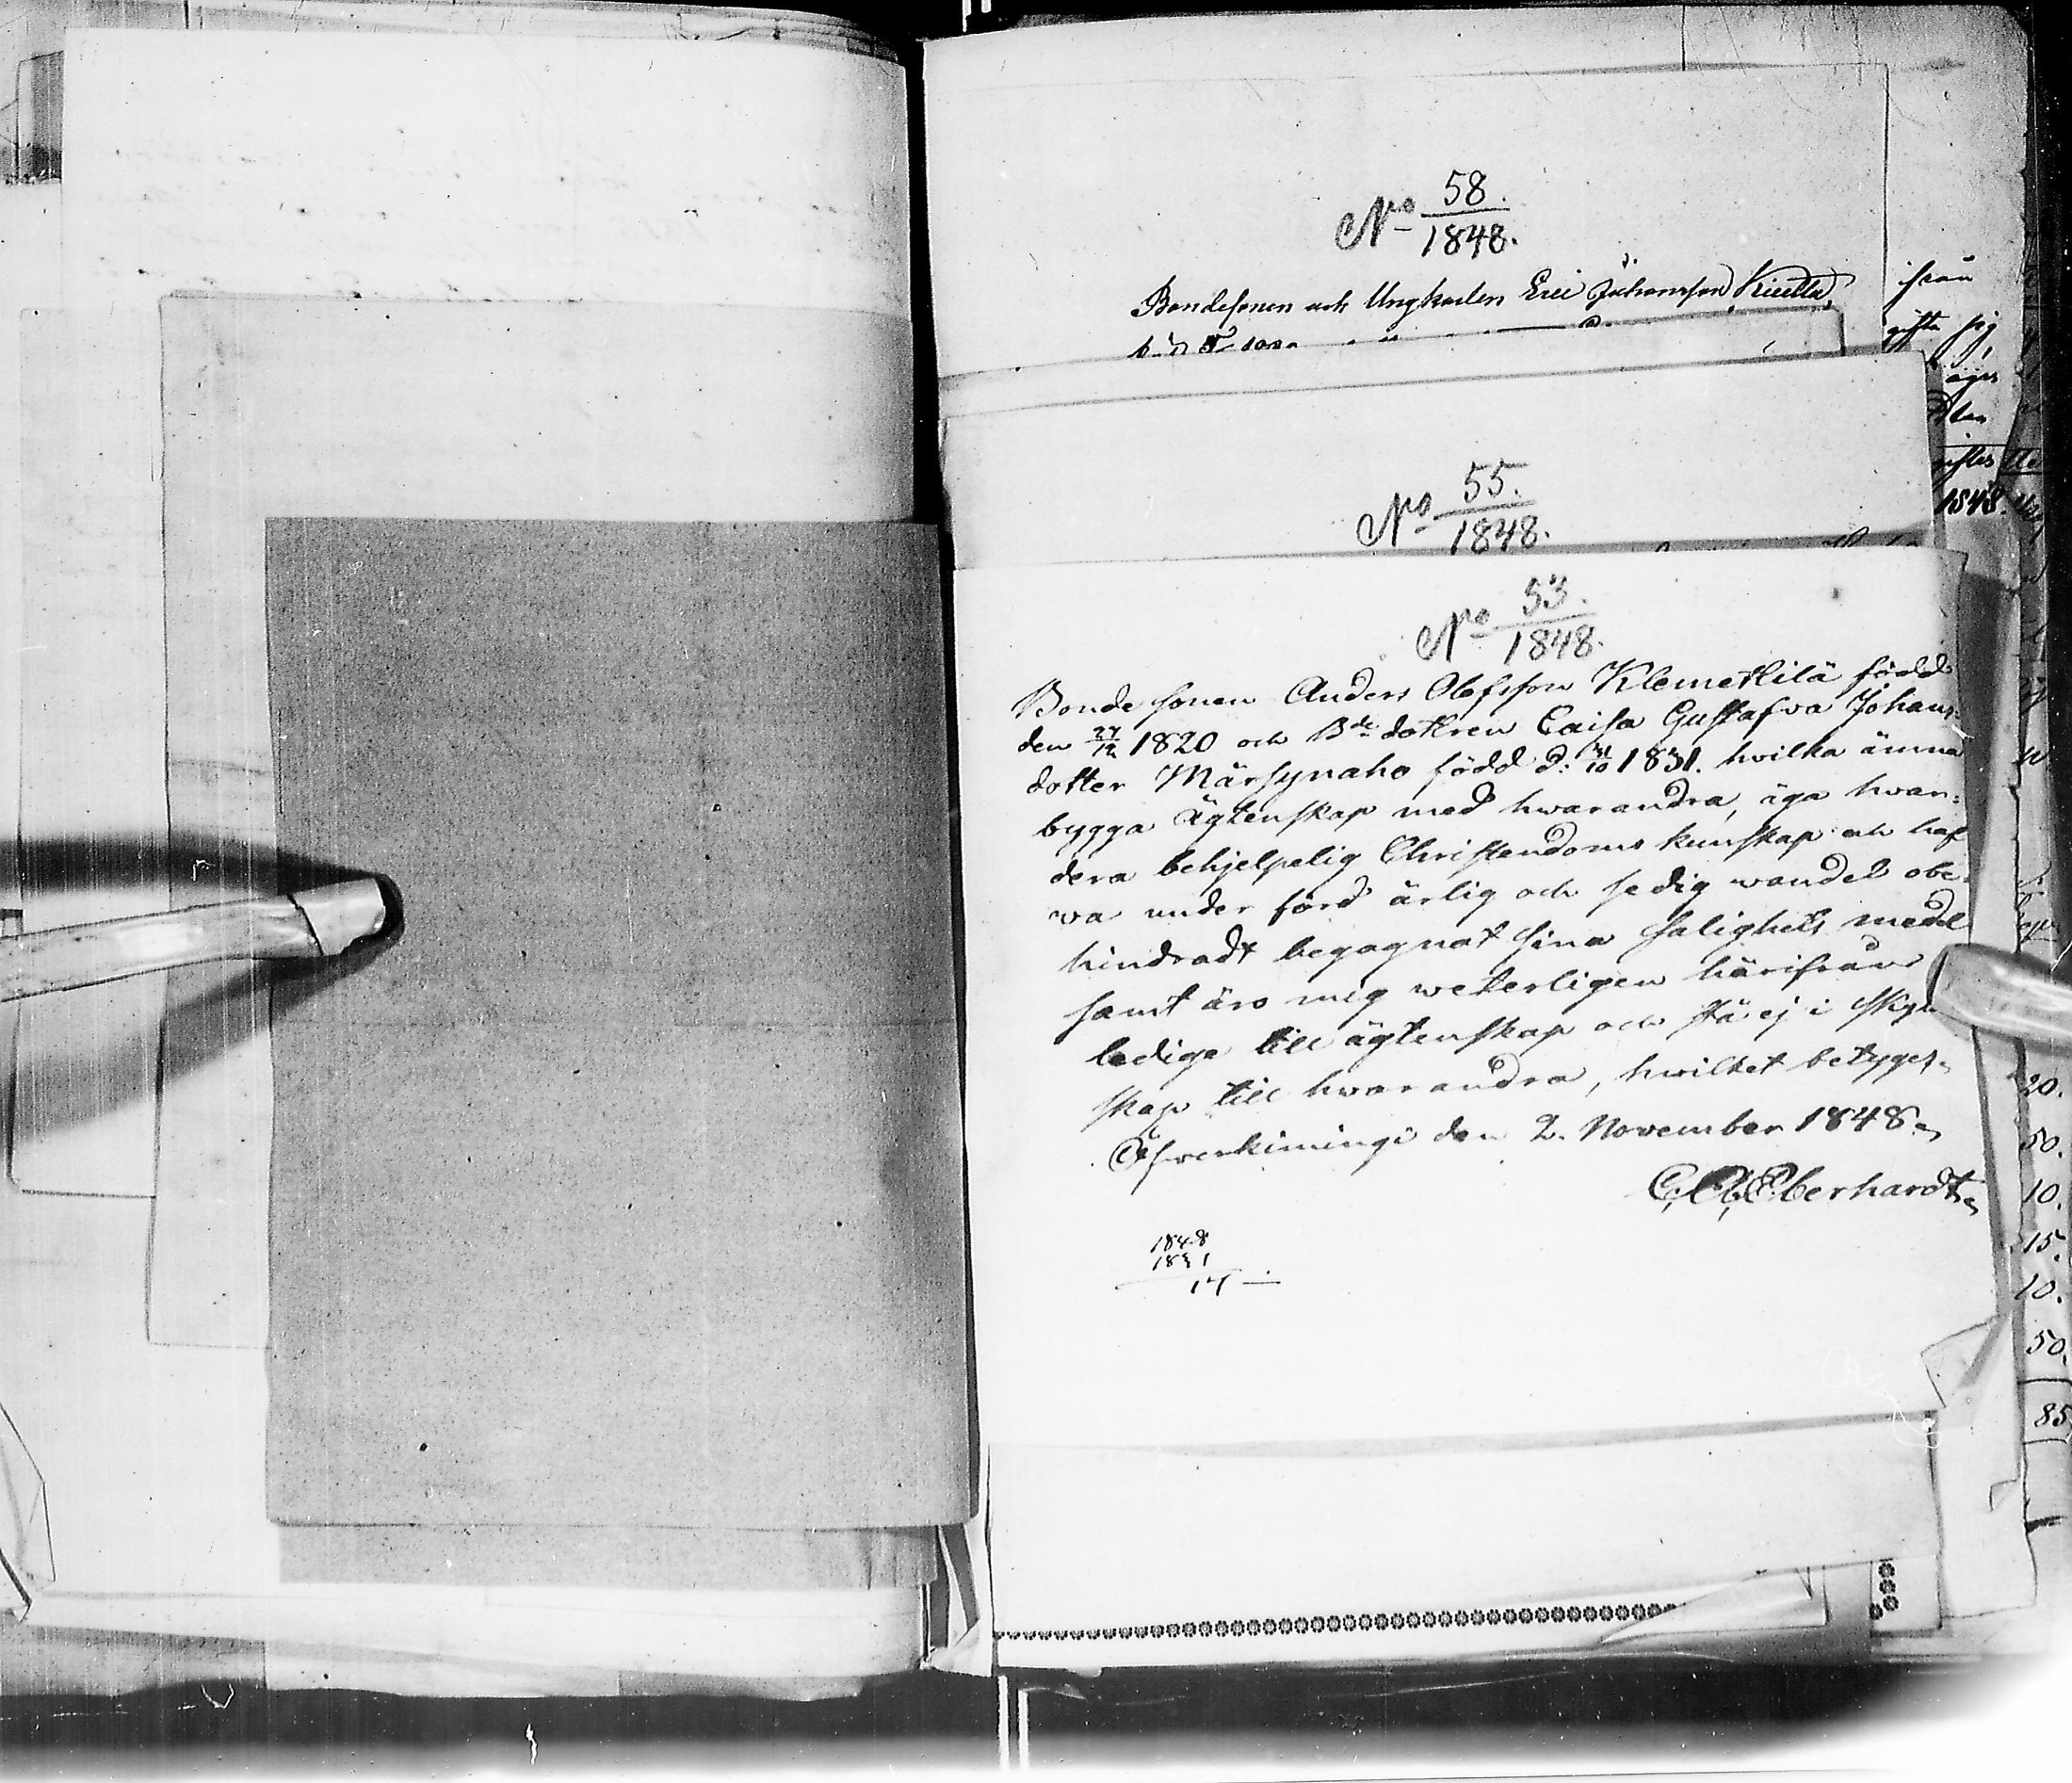 No 58.
1848.
Bondesonen och Ungkarlen Eric Johansson Kiettla,
ifrån
gifta sig
äger
1848.
No 55.
1848.
No 53.
1848.
Bonde sonen Anders Olofsson Klemettilä född
den 27/12 1820 och Bde dottren Caisa Gustafva Johans:
dotter Märsynaho född d: 31/10 1831. hvilka ämna
bygga Ägtenskap med hwarandra, äga hwar:
dera behjelpelig Christendoms kunskap och haf
va under förd ärlig och sedig wandel obe-
hindradt begagnat sina salighets medel
samt äro mig weterligen härifrån
ledige till ägtenskap och stå ej i skyld
skap till hwarandra, hwilket betyges.
Öfwerkimingi den 2. November 1848.
C, A, Eberhardt
1848
1831
17
20.
50.
10.
15.
10.
50.
85